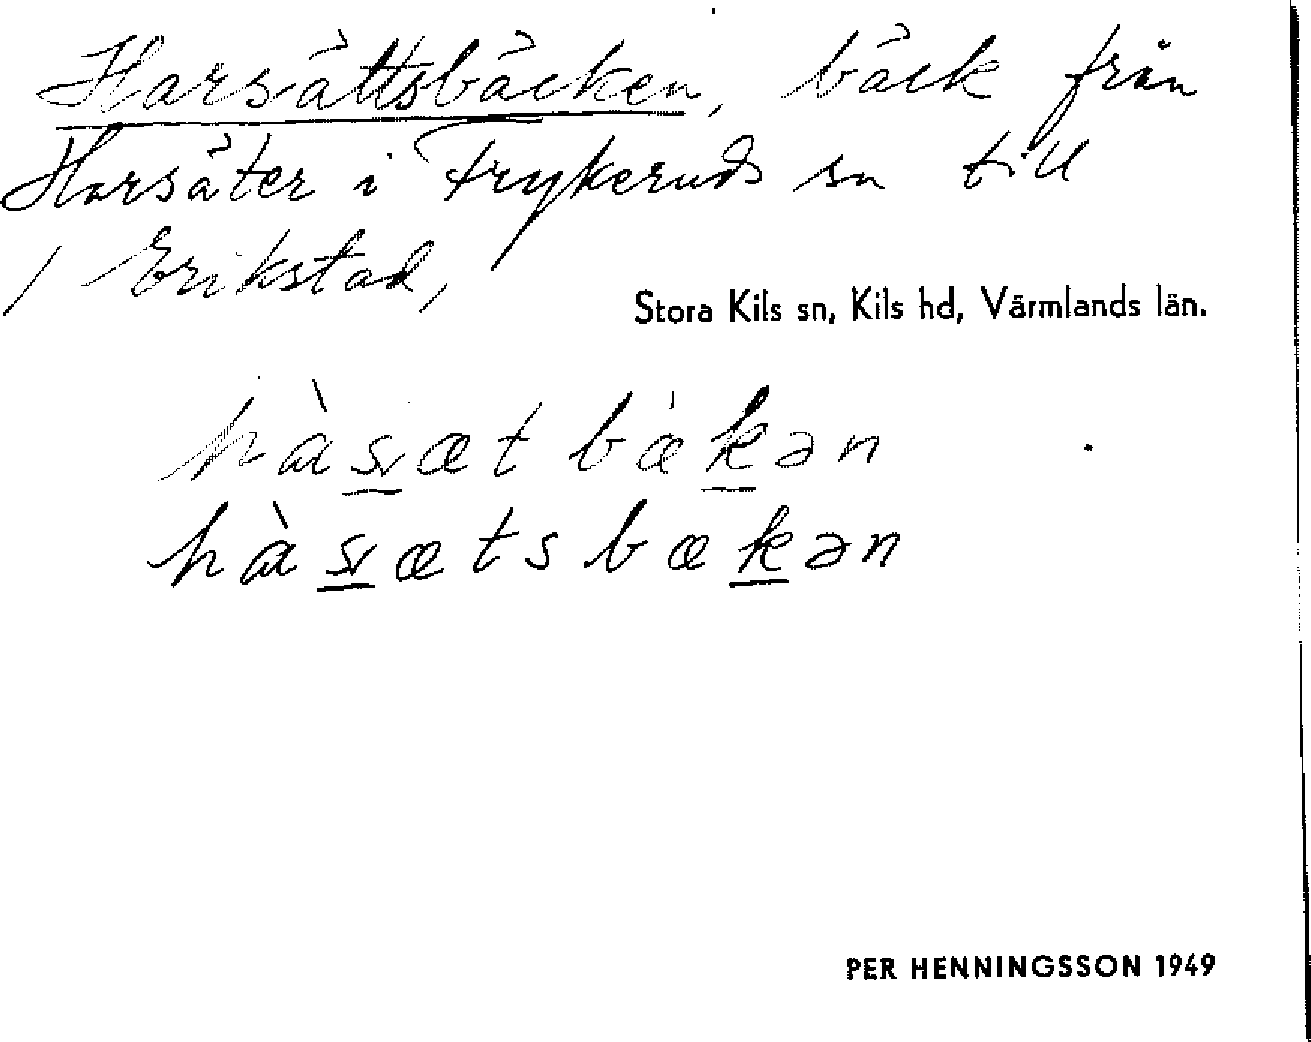 Harsättsbäcken, bäck från
Harsäter i Frykeruds sn till
/ Erikstad,
Stora Kils sn, Kils hd, Värmlands län.
hàsæt bàkən
hàsætsbækən
PER HENNINGSSON 1949